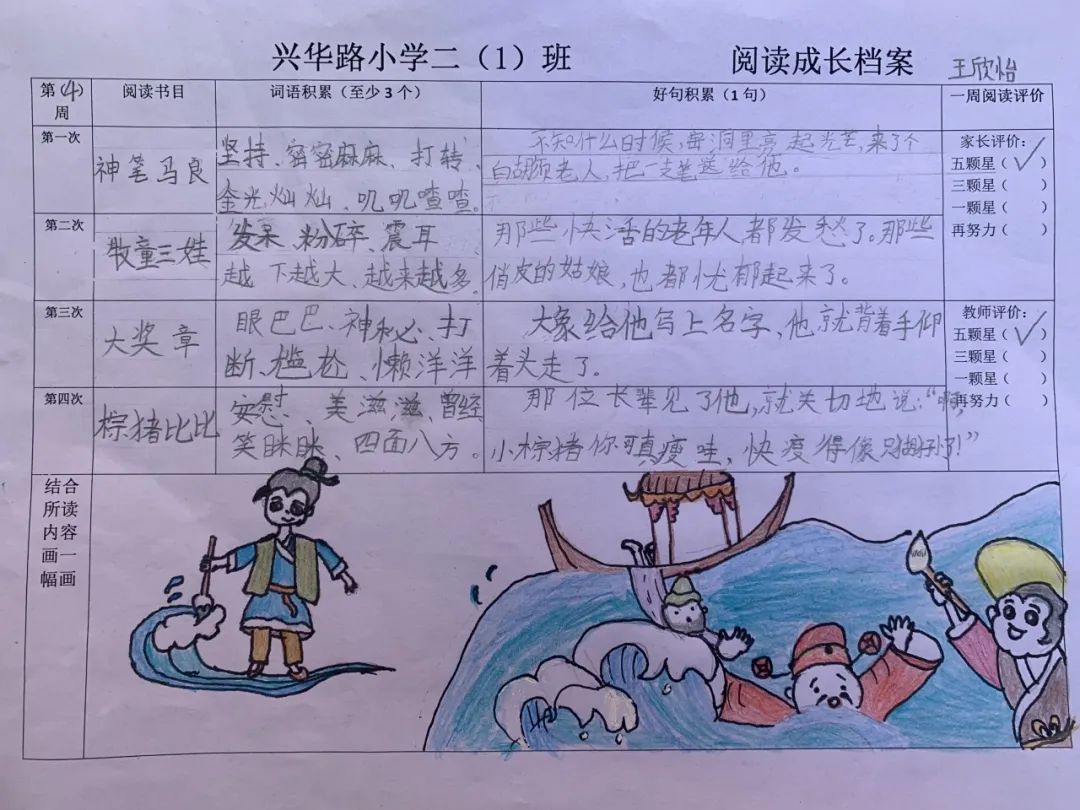 兴华路小学二（1）班 阅读成长档案 王欣怡
第(4)周 阅读书目 词语积累（至少3个） 好句积累（1句） 一周阅读评价
第一次
神笔马良
坚持、密密麻麻、打转、
金光灿灿、叽叽喳喳。
不知什么时候,窑洞里亮起光芒,来了个
白胡须老人,把一支笔送给他。
家长评价：
五颗星（✓）
三颗星（ ）
一颗星（ ）
再努力（ ）
第二次
牧童三姓
发呆、粉碎、震耳
越下越大、越来越多。
那些快活的老年人都发愁了。那些
俏皮的姑娘，也都忧郁起来了。
第三次
大奖章
眼巴巴、神秘、打
断、尴尬、懒洋洋
大象给他写上名字,他就背着手仰
着头走了。
教师评价：
五颗星（✓）
三颗星（ ）
一颗星（ ）
再努力（ ）
第四次
棕猪比比
安慰、美滋滋、曾经
笑眯眯、四面八方。
那位长辈见了他,就关切地说:“啊,
小棕猪你可真瘦哇，快瘦得像只猴子了!”
结合
所读
内容
画一
幅画